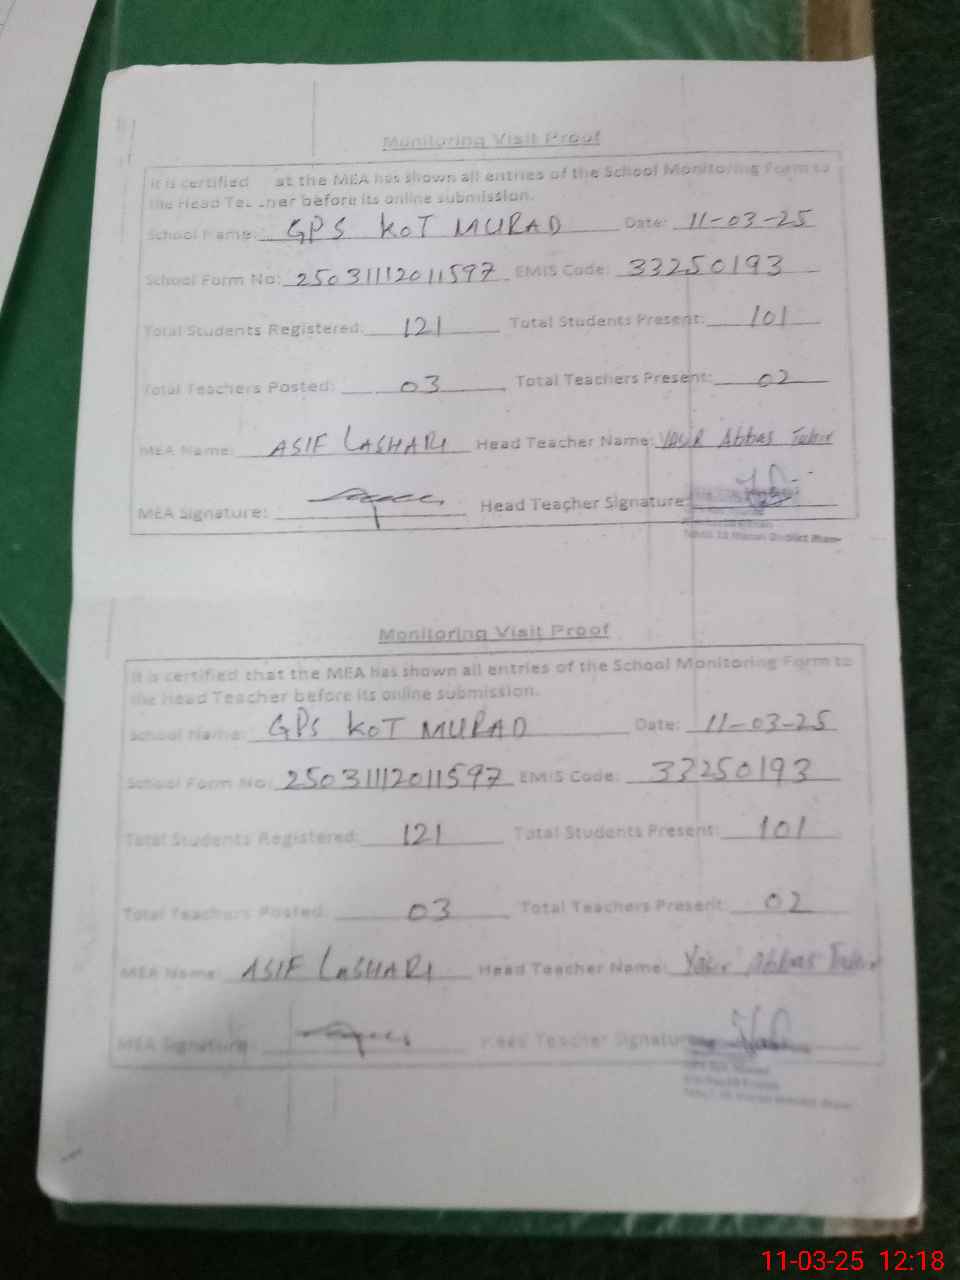 Monitoring Visit Proof
It is certified at the MEA has shown all entries of the School Monitoring Form to
the Head Teacher before its online submission.
School Name: GPS KOT MURAD Date: 11-03-25
School Form No: 25031112011597 EMIS Code: 33250193
Total Students Registered: 121 Total Students Present: 101
Total Teachers Posted: 03 Total Teachers Present: 02
MEA Name: ASIF LASHARI Head Teacher Name: Yasir Abbas Tahir
MEA Signature: Head Teacher Signature
Monitoring Visit Proof
It is certified that the MEA has shown all entries of the School Monitoring Form to
the Head Teacher before its online submission.
School Name: GPS KOT MURAD Date: 11-03-25
School Form No: 25031112011597 EMIS Code: 33250193
Total Students Registered: 121 Total Students Present: 101
Total Teachers Posted: 03 Total Teachers Present: 02
MEA Name: ASIF LASHARI Head Teacher Name: Yasir Abbas Tahir
MEA Signature: Head Teacher Signature
11-03-25 12:18